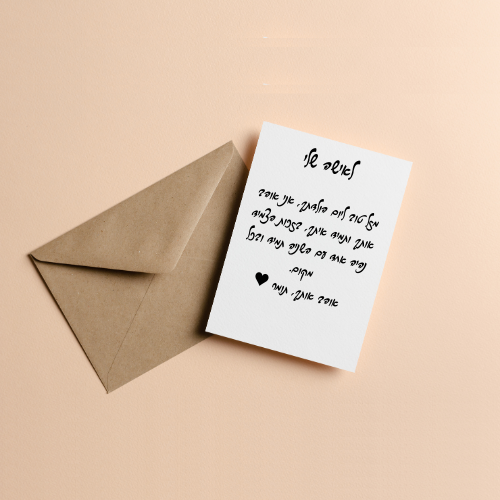 לאישה שלי
מזל טוב ליום הולדתך, אני אוהב
אותך ותמיד איתך, בזכות הצמיד
נהיה אחד עם השניה תמיד ובכל
מקום.
אוהב אותך, תומר ♥